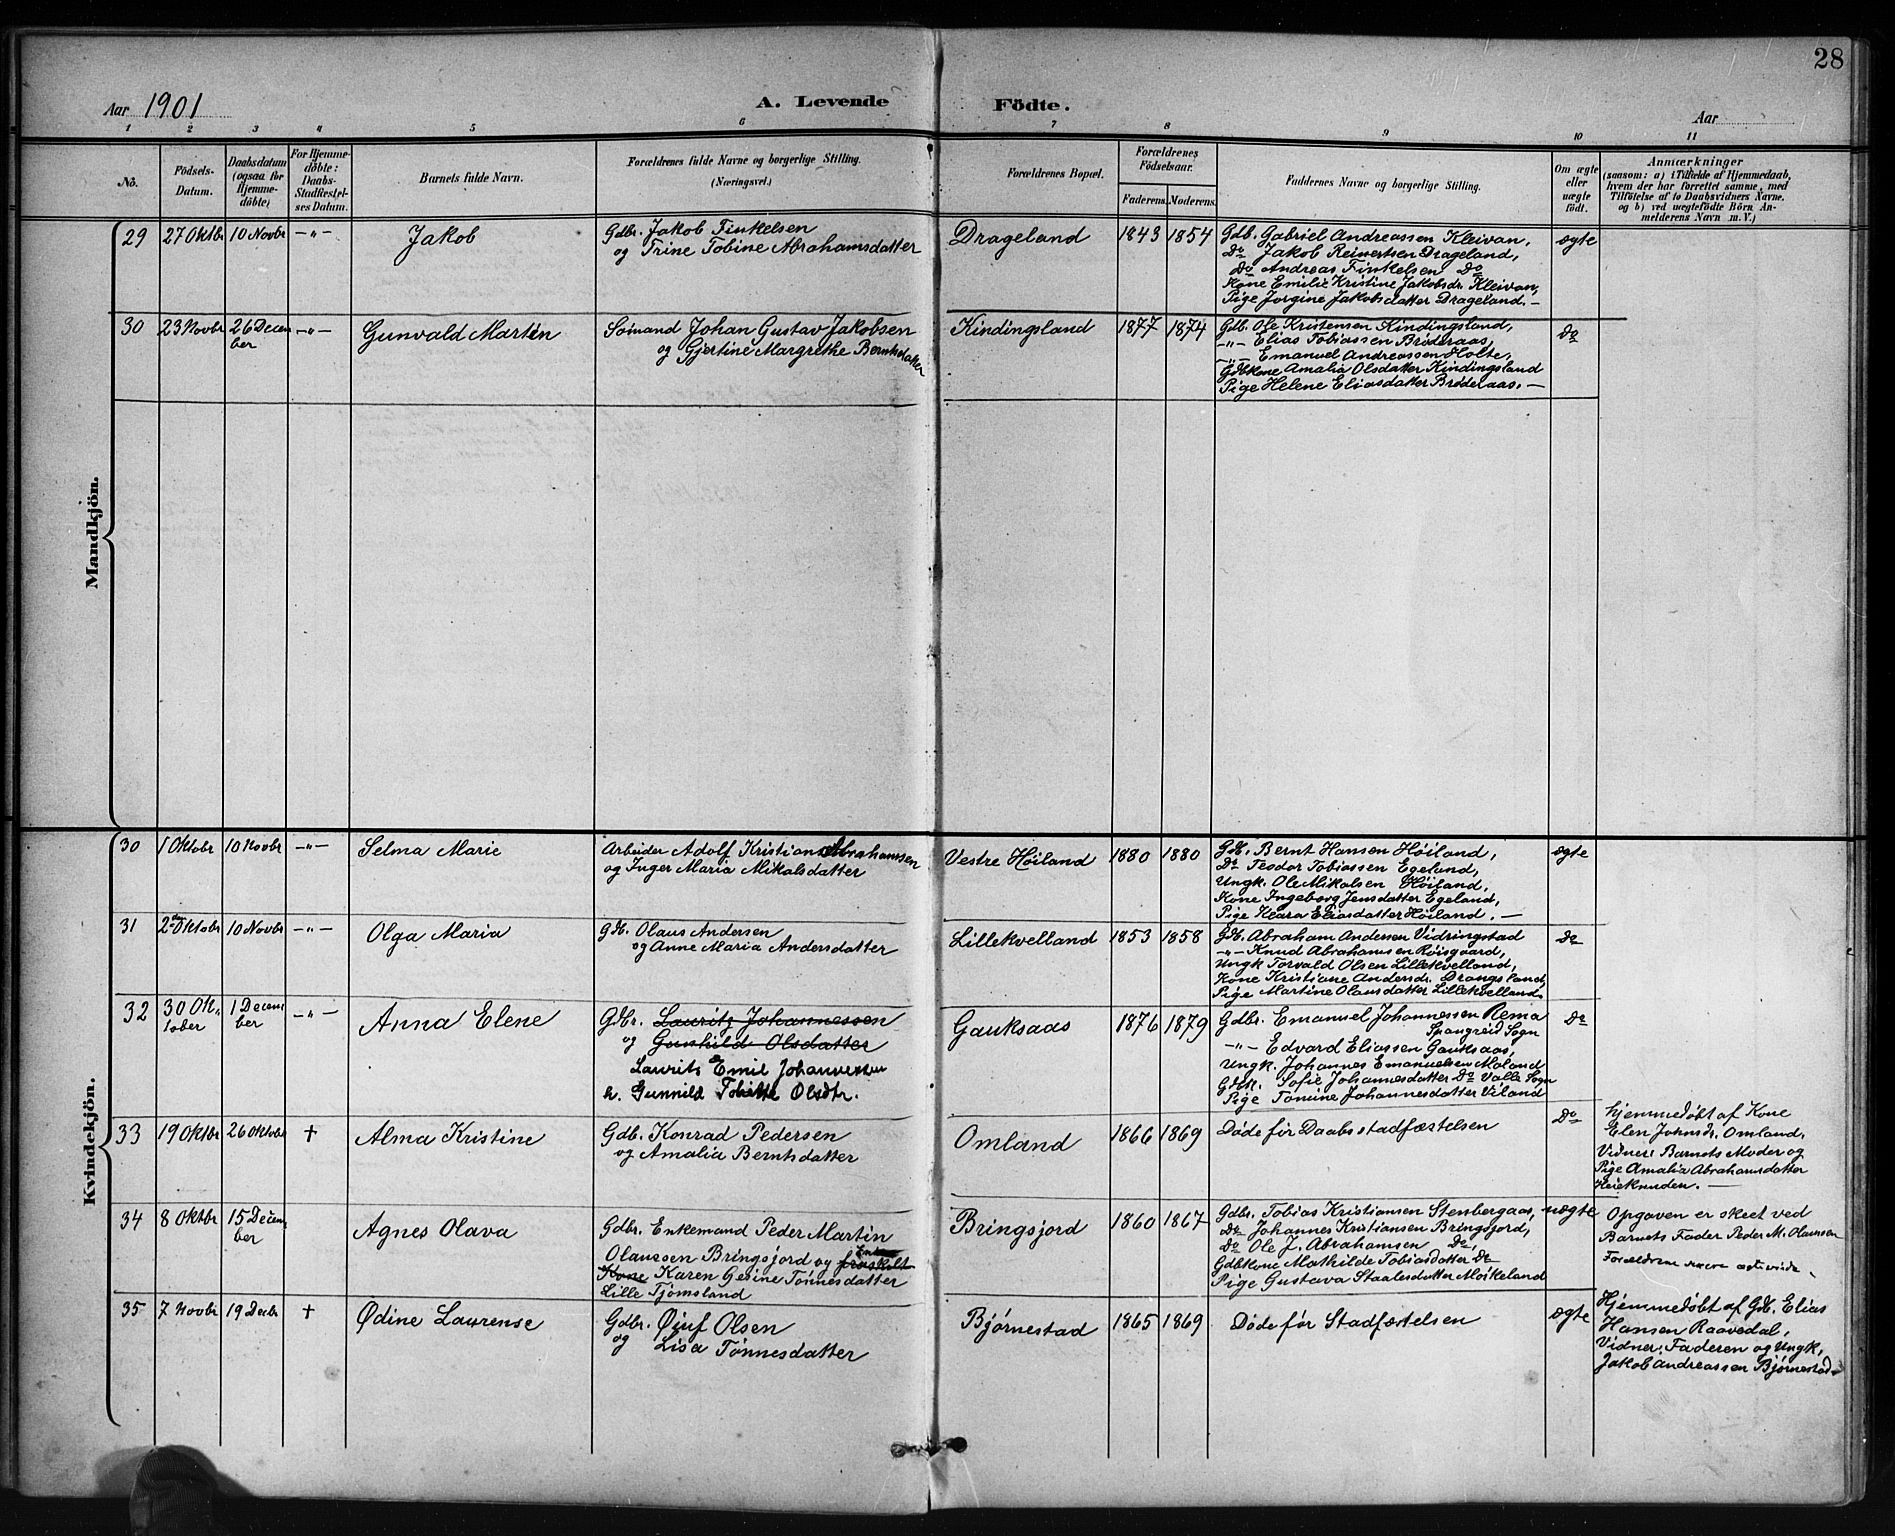 28
Aar 1901
A. Levende
Födte.
Aar
1 2 3 4 5 6 7 8 9 10 11
No.
Födsels-
Datum.
Daabsdatum
(ogsaa for
Hjemme-
döbte)
For Hjemme-
döbte:
Daabs-
Stadfæstel-
ses Datum.
Barnets fulde Navn.
Forældrenes fulde Navne og borgerlige Stilling.
(Næringsvei.)
Forældrenes Bopæl.
Forældrenes
Födselsaar.
Faderens.
Moderens.
Faddernes Navne og borgerlige Stilling.
Om ægte
eller
uægte
födt.
Anmærkninger
(saasom: a) i Tilfælde af Hjemmedaab,
hvem der har forrettet samme, med
Tilföielse af to Daabsvidners Navne.
og b) ved uægtefödte Börn An-
melderens Navn m. V.)
Mandkjön.
29 27 Oktbr 10 Novbr -"- Jakob
Gdbr. Jakob Finkelsen
og Trine Tobine Abrahamsdatter
Drageland 1843 1854
Gdb. Gabriel Andreassen Kleivan,
Do Jakob Reinertsen Drageland,
Do Andreas Finkelsen Do
Kone Emilie Kristine Jakobsdr. Kleivan,
Pige Jorgine Jakobsdatter Drageland. –
ægte
30 23 Novbr 26 Decem
ber
-"- Gunvald Martin
Sømand Johan Gustav Jakobsen
og Gjertine Margrethe Berntsdatter
Kindingsland 1877 1874
Gdb. Ole Kristensen Kindingsland,
-"- Elias Tobiassen Brøderaas,
-"- Emanuel Andreassen Holte,
Gdbkone Amalia Olsdatter Kindingsland
Pige Helene Eliasdatter Brøderaas. –
Do
Kvindekjön.
30 1 Oktobr 10 Novbr -"- Selma Marie
Arbeider Adolf Kristian Abrahamsen
og Inger Maria Mikalsdatter
Vestre Høiland 1880 1880
Gdb. Bernt Hansen Høiland,
Do Teodor Tobiassen Egeland,
Ungk. Ole Mikalsen Høiland,
Kone Ingeborg Jensdatter Egeland,
Pige Klara Eliasdatter Høiland. –
ægte
31 2den Oktobr 10 Novbr -"- Olga Maria
Gdb. Olaus Andersen
og Anne Maria Andersdatter
Lillekvelland 1853 1858
Gdb. Abraham Andersen Vidringstad
-"- Knud Abrahamsen Røisgaard,
Ungk Torvald Olsen Lillekvelland,
Kone Kristiane Andersdr. Drangsland,
Pige Martine Olausdatter Lillekvelland.
Do
32 30 Ok-
tober
1 Decem
ber
-"- Anna Elene
Gdbr. Lauritz Johannessen
og Gunhild Olsdatter
Laurits Emil Johannessen
h. Gunnild Tobitte Olsdtr.
Gauksaas 1876 1879
Gdbr. Emanuel Johannessen Rema
Spangreid Sogn
-"- Edvard Eliassen Gauksaas,
Ungk. Johannes Emanuelsen Møland
Gdbk. Sofie Johannesdatter Do Valle Sogn
Pige Tomine Johannesdatter Viland
Do
33 19 Oktbr 26 Oktobr † Alma Kristine
Gdb. Konrad Pedersen
og Amalia Berntsdatter
Omland 1866 1869
Døde før Daabsstadfæstelsen
Do
Hjemmedøbt af Kone
Elen Johnsdr. Omland.
Vidner: Barnets Moder og
Pige Amalia Abrahamsdatter
Heieknuden. –
34 8 Oktbr 15 Decem
ber
Agnes Olava
Gdbr. Enkemand Peder Martin
Olaussen Bringsjord og fraskilt
Enke
Kone Karen Gesine Tønnesdatter
Lille Tjomsland
Bringsjord 1860 1867
Gdbr. Tobias Kristiansen Stensbergaas,
Do Johannes Kristiansen Bringsjord,
Do Ole J. Abrahamsen Do
Gdbkone Mathilde Tobiasdatter Do
Pige Gustava Staalesdatter Møikeland
uægte
Opgaven er skeet ved
Barnets Fader Peder M. Olaussen
Forældrene
35 7 Novbr 19 Decbr † Ødine Laurense
Gdbr. Øiuf Olsen
og Lisa Tønnesdatter
Bjørnestad 1865 1869
Døde før Stadfæstelsen
ægte
Hjemmedøbt af Gdb. Elias
Hansen Raavedal,
Vidner: Faderen og Ungk,
Jakob Andreassen Bjørnestad.